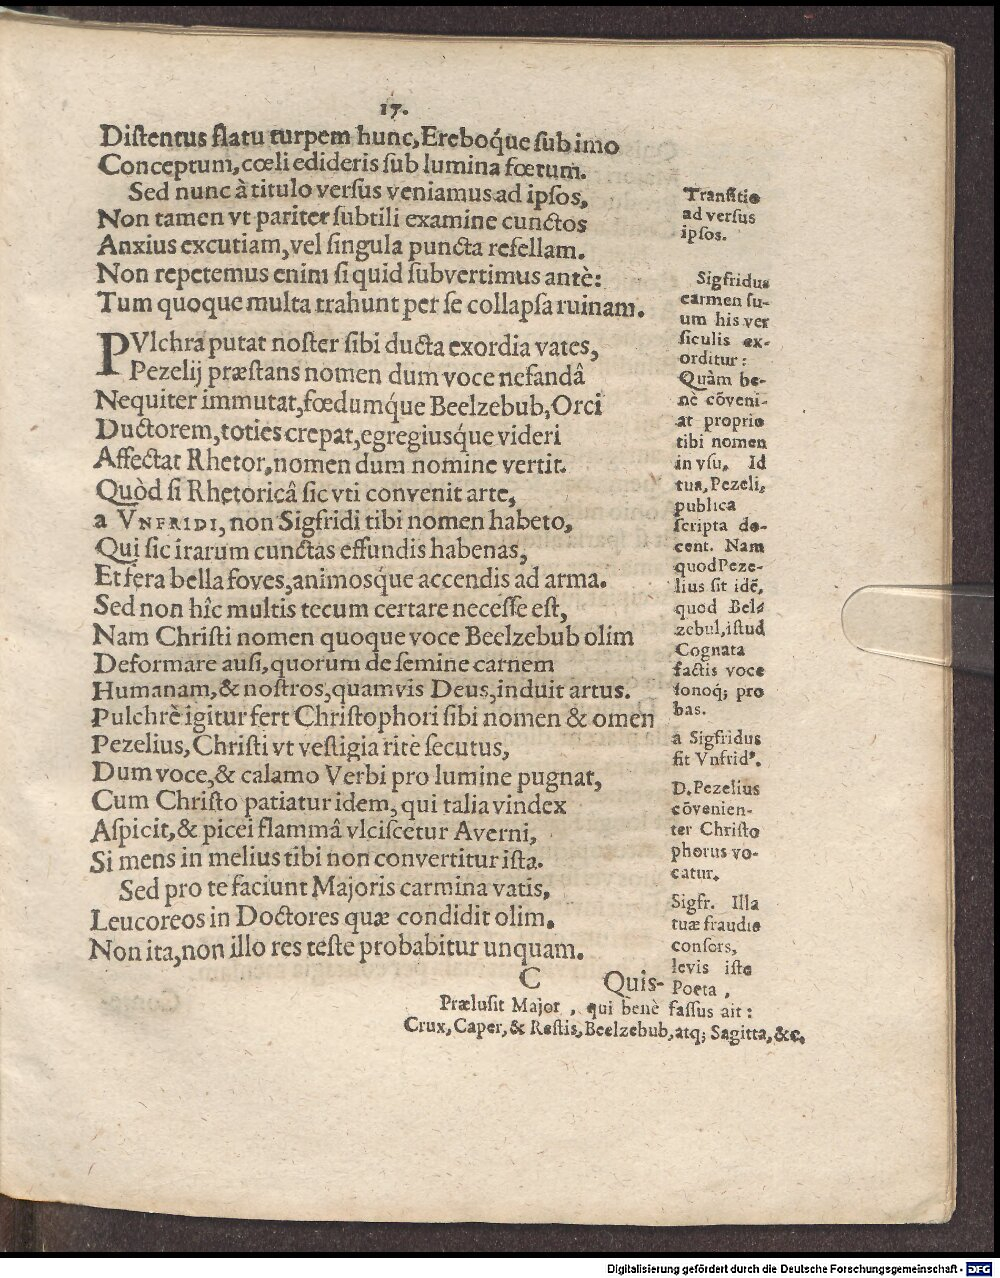 17.
Diſtentus flatu turpem hunc, Ereboq́ue ſub imo
Conceptum, cœli edideris ſub lumina fœtum.
Sed nunc à titulo verſus veniamus ad ipſos,
Non tamen vt pariter ſubtili examine cunctos
Anxius excutiam, vel ſingula puncta refellam.
Non repetemus enim ſi quid ſubvertimus antè:
Tum quoque multa trahunt per ſe collapſa ruinam.
PVlchra putat noſter ſibi ducta exordia vates,
Pezelij præſtans nomen dum voce nefandâ
Nequiter immutat, fœdumq́ue Beelzebub, Orci
Ductorem, toties crepat, egregiusq́ue videri
Affectat Rhetor, nomen dum nomine vertit.
Quòd ſi Rhetoricâ ſic vti convenit arte,
a VNFRIDI, non Sigfridi tibi nomen habeto,
Qui ſic irarum cunctas effundis habenas,
Et fera bella foves, animosq́ue accendis ad arma.
Sed non hîc multis tecum certare neceſſe eſt,
Nam Chriſti nomen quoque voce Beelzebub olim
Deformare auſi, quorum de ſemine carnem
Humanam, & noſtros, quamvis Deus, induit artus.
Pulchrè igitur fert Chriſtophori ſibi nomen & omen
Pezelius, Chriſti vt veſtigia ritè ſecutus,
Dum voce, & calamo Verbi pro lumine pugnat,
Cum Chriſto patiatur idem, qui talia vindex
Aſpicit, & picei flammâ vlciſcetur Averni,
Si mens in melius tibi non convertitur iſta.
Sed pro te faciunt Majoris carmina vatis,
Leucoreos in Doctores quæ condidit olim.
Non ita, non illo res teſte probabitur unquam.
C Quis-
Tranſitio
ad verſus
ipſos.
Sigfridus
carmen ſu-
um his ver
ſiculis ex-
orditur:
Quàm be-
nè cõveni-
at proprio
tibi nomen
in vſu, Id
tua, Pezeli,
publica
ſcripta do-
cent. Nam
quod Peze-
lius ſit idẽ,
quod Bel-
zebul, iſtud
Cognata
factis voce
ſonoq; pro
bas.
a Sigfridus
fit Vnfridꝰ.
D. Pezelius
cõvenien-
ter Chriſto
phorus vo-
catur.
Sigfr. Illa
tuæ fraudis
conſors,
levis iſte
Poeta,
Præluſit Major, qui benè faſſus ait:
Crux, Caper, & Reſtis, Beelzebub, atq; Sagitta, &c.
Digitalisierung gefördert durch die Deutsche Forschungsgemeinschaft - DFG